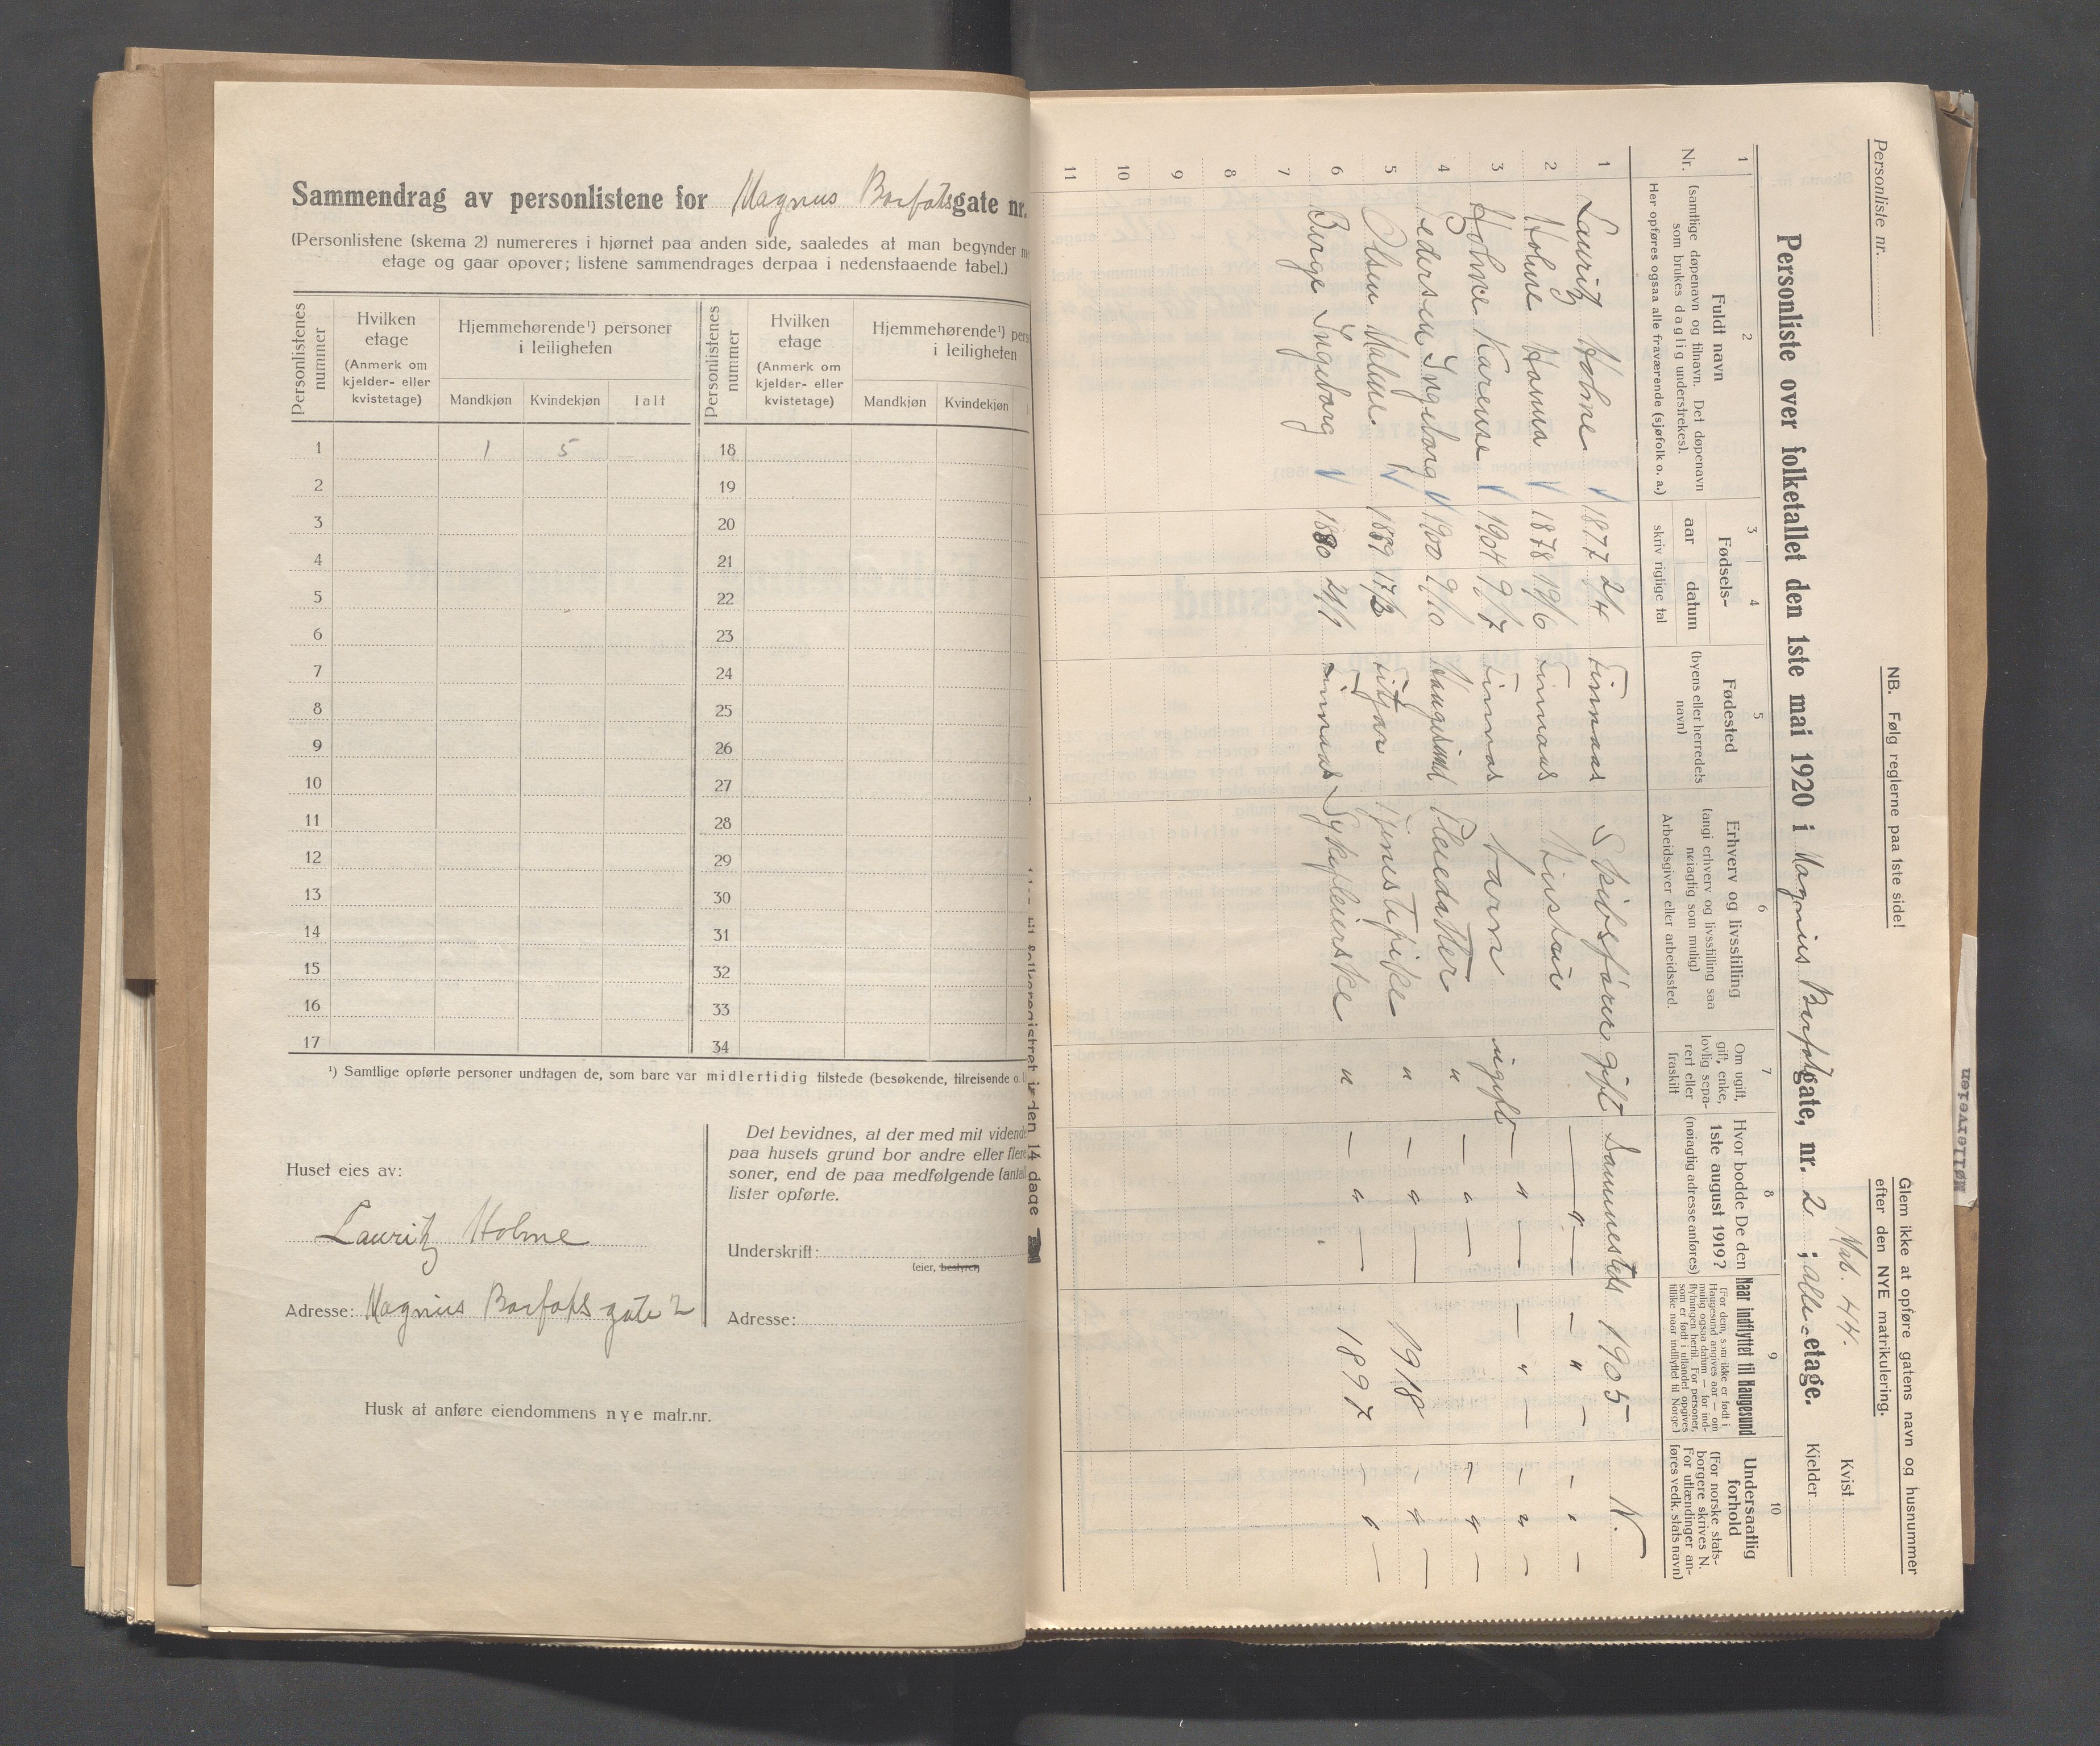 Sammendrag av personlistene for Magnus Barfotsgate nr.
(Personlistene (skema 2) numereres i hjørnet paa anden side, saaledes at man begynder
etage og gaar opover; listene sammendrages derpaa i nedenstaaende tabel.)
Personlistenes nummer
Hvilken etage (Anmerk om kjelder- eller kvistetage)
Hjemmehørende¹) personer i leiligheten
Mandkjøn Kvindekjøn Ialt
Personlistenes nummer
Hvilken etage (Anmerk om kjelder- eller kvistetage)
Hjemmehørende¹) pers
i leiligheten
Mandkjøn Kvindekjøn
1 1 5 18
2 19
3 20
4 21
5 22
6 23
7 24
8 25
9 26
10 27
11 28
12 29
13 30
14 31
15 32
16 33
17 34
¹) Samtlige opførte personer undtagen de, som bare var midlertidig tilstede (besøkende, tilreisende o.
Huset eies av:
Lauritz Holme
Adresse: Magnus Barfots gate 2
Det bevidnes, at der med mit vidende
paa husets grund bor andre eller flere
soner, end de paa medfølgende (antal
lister opførte.
Underskrift:
(eier, bestyrer)
Adresse:
Husk at anføre eiendommens nye matr.nr.
til folkeregistret inden 14 dage
Personliste nr.
NB. Følg reglerne paa 1ste side!
Glem ikke at opføre gatens navn og husnummer
efter den NYE matrikulering.
Mab. 44.
Kvist
Personliste over folketallet den 1ste mai 1920 i Magnus Barfotgate, nr. 2 ; alle etage.
Kjelder
1 2 3 4 5 6 7 8 9 10
Nr.
Fuldt navn
(samtlige døpenavn og tilnavn. Det døpenavn
som brukes daglig understrekes).
Her opføres ogsaa alle fraværende (sjøfolk o. a.)
Fødsels-
aar datum
skriv rigtige tal
Fødested
(byens eller herredets
navn)
Erhverv og livsstilling
(angi erhverv og livsstilling saa
nøiagtig som mulig)
Arbeidsgiver eller arbeidssted.
Om ugift,
gift, enke,
lovlig sepa-
rert eller
fraskilt
Hvor bodde De den
1ste august 1919?
(nøiagtig adresse anføres)
Naar indflyttet til Haugesund
(For dem, som ikke er født i
Haugesund angives aar — om
mulig ogsaa datum — for ind-
flytningen hertil. For personer,
som er født i utlandet opgives
tillike naar indflyttet til Norge)
Undersaatlig
forhold
(For norske stats-
borgere skrives N.
For utlændinger an-
føres vedk. stats navn)
1 Lauritz Holme 1877 2/4 Finnaas Skibsfører gift Sammesteds 1905 N.
2 Holme Hanna 1878 19/6 Finnaas Hustru — " — - " - - " -
3 Holme Karense 1904 9/7 Finnaas barn ugift — " — — " — - " -
4 Pedersen Ingeborg 1900 9/10 Haugesund Pleiedatter " — " — " " —
5 Olsen Malene. 1889 17/3 Fitjar Tjenestepike " — " — 1918 - " —
6 Børge Ingeborg 1880 21/1 Finnaas Sykepleierske " — " — 1897 - " —
7
8
9
10
11
Møllerveien